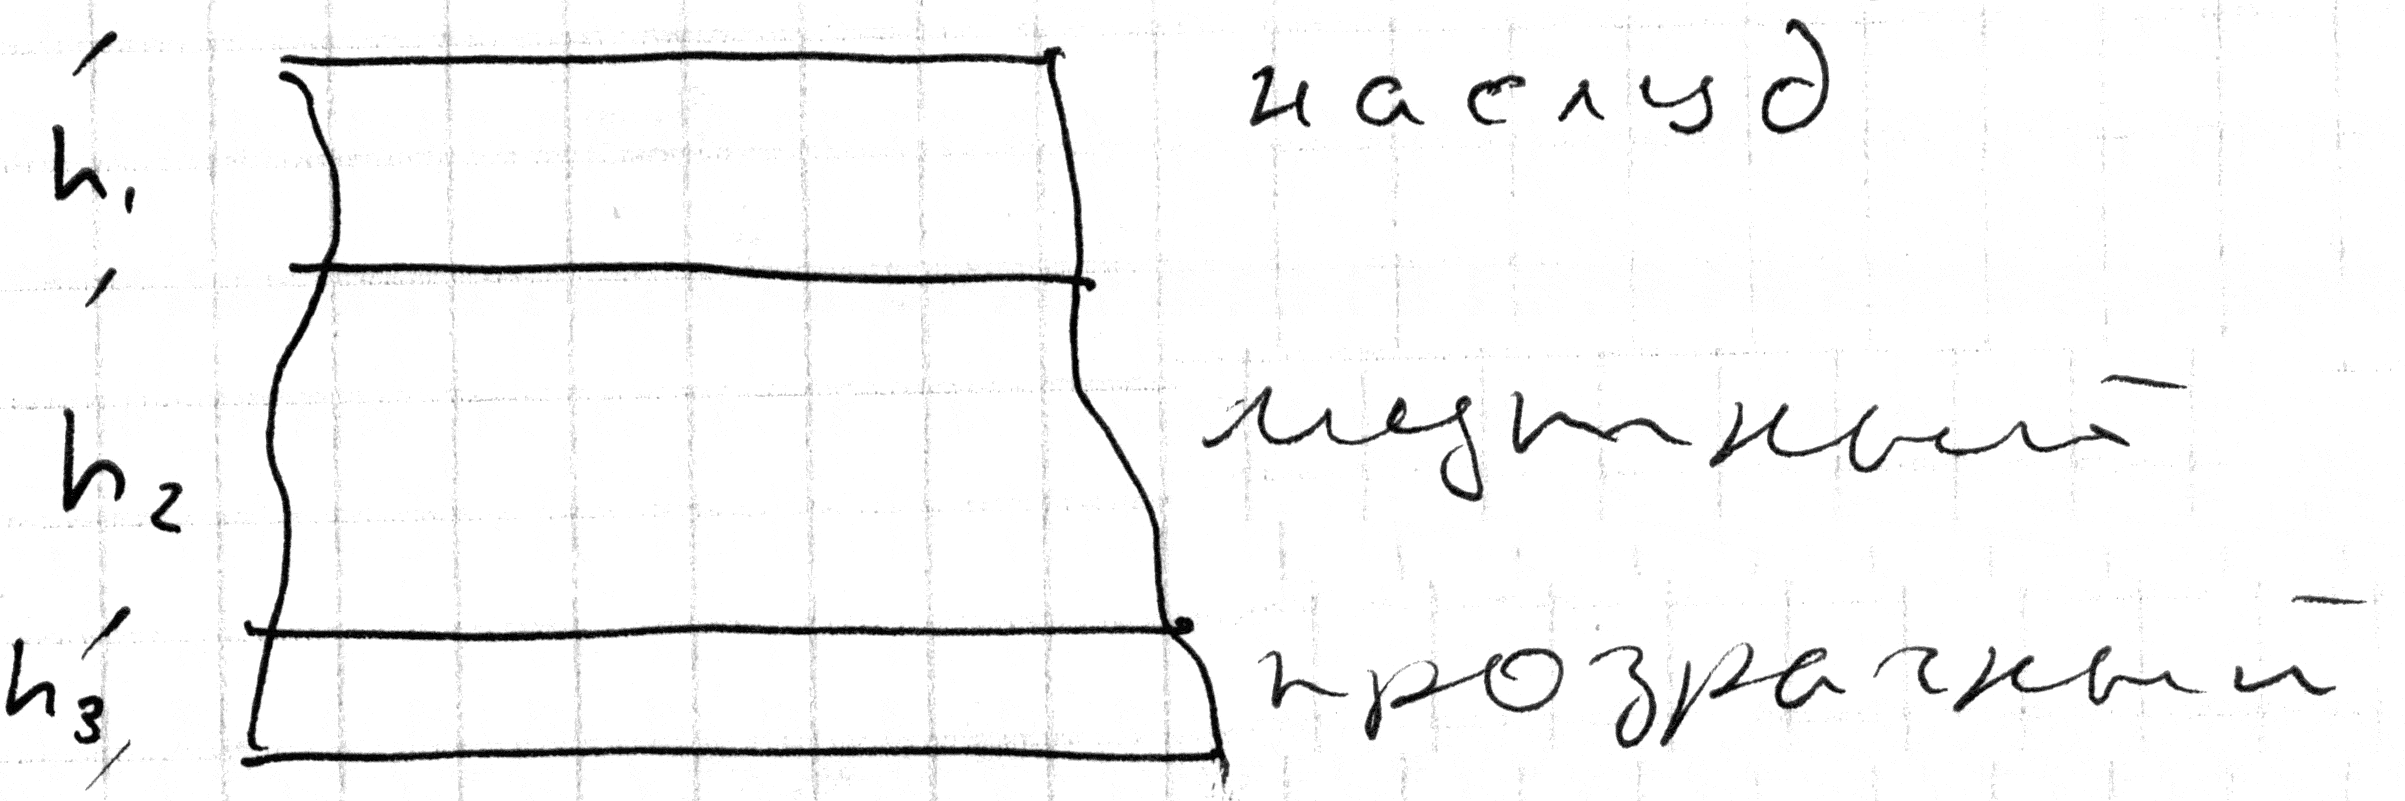 h₁ наслуд
h₂ мутный
h₃ прозрачный